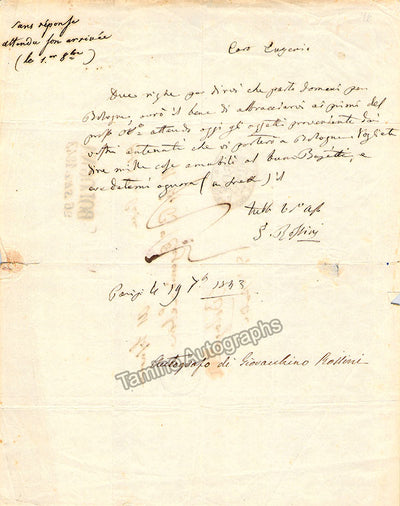 sans réponse
attendu son arrivée
(le 1.er 8bre)
Caro Eugenio
Due righe per dirvi che parto domani per
Bologna, avrò il bene di abbracciarvi ai primi del
pross.o 8b.e attendo oggi gli oggetti proveniente dai
vostri che vi porterò a Bologna. Vogliate
dire mille cose amabili al buon e
credetemi ognora (in fretta) il
tutto V.o Aff.
G. Rossini
Parigi li 19 7b 1843
Autografo di Giovacchino Rossini
Tamino Autographs